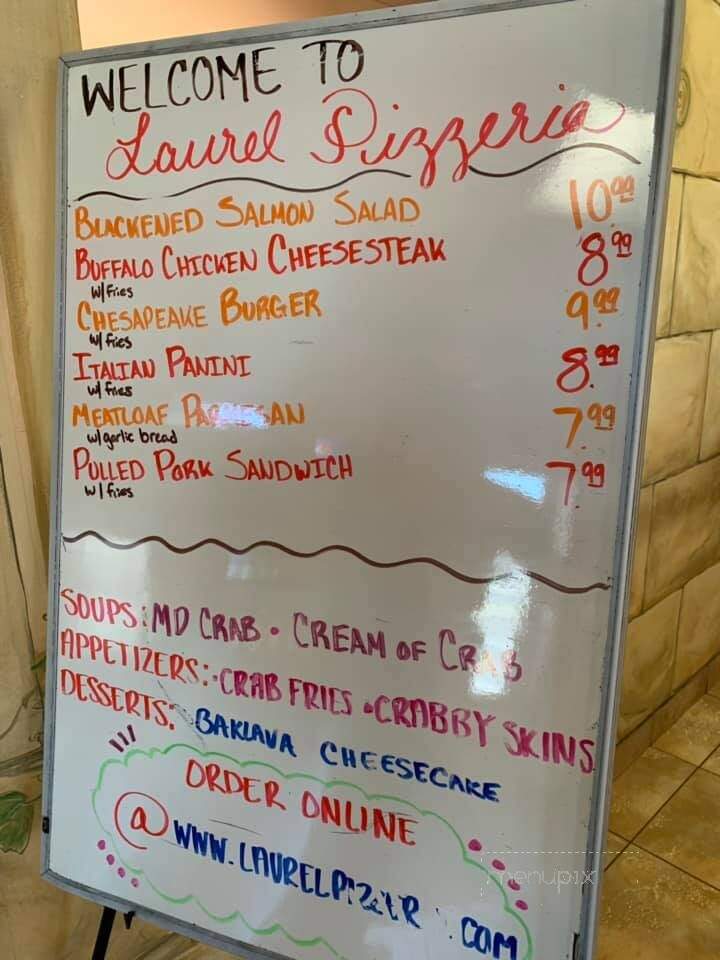 WELCOME TO
Laurel Pizzeria
BLACKENED SALMON SALAD 10.99
BUFFALO CHICKEN CHEESESTEAK 8.99
w/fries
CHESAPEAKE BURGER 9.99
w/ fries
ITALIAN PANINI 8.99
w/ fries
MEATLOAF PARMESAN 7.99
w/garlic bread
PULLED PORK SANDWICH 7.99
w/ fries
SOUPS: MD CRAB • CREAM OF CRAB
APPETIZERS: • CRAB FRIES • CRABBY SKINS
DESSERTS: BAKLAVA CHEESECAKE
ORDER ONLINE
@ WWW.LAURELPIZZER .COM
menupix